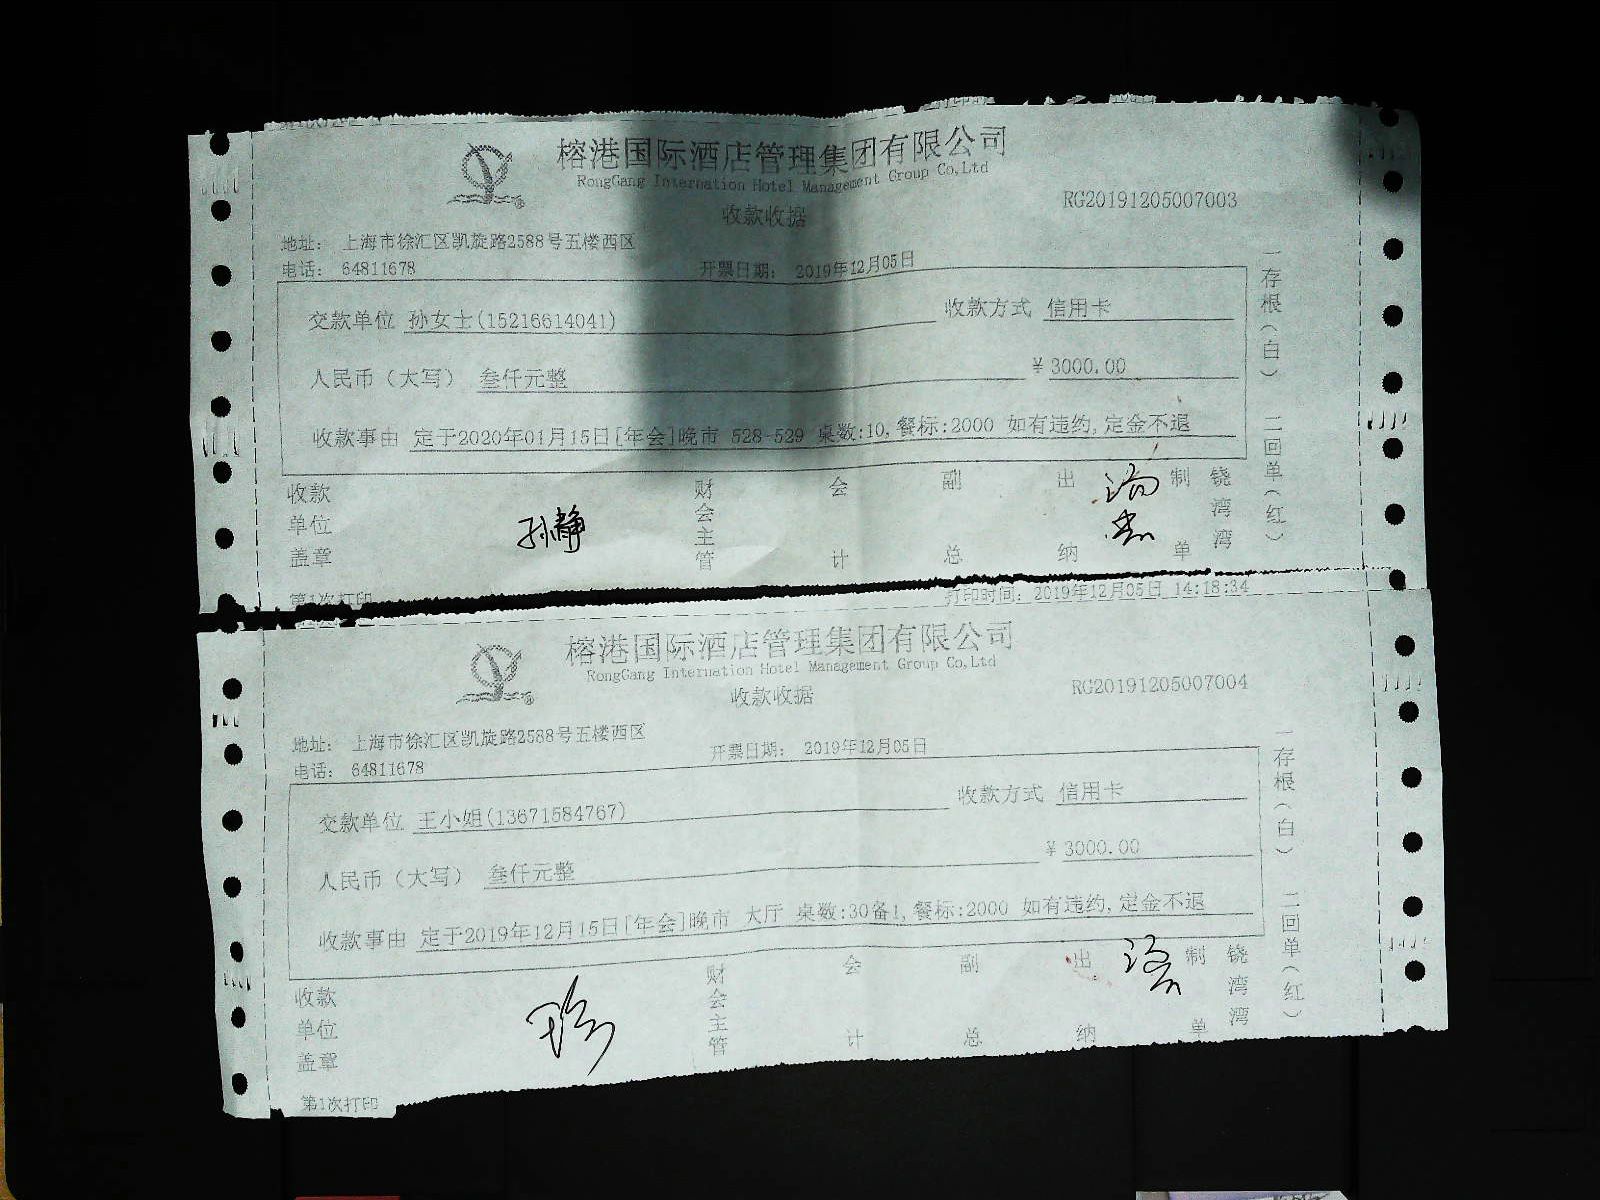 榕港国际酒店管理集团有限公司
RongGang Internation Hotel Management Group Co,Ltd
收款收据
RG20191205007003
地址： 上海市徐汇区凯旋路2588号五楼西区
电话： 64811678
开票日期： 2019年12月05日
交款单位 孙女士(15216614041) 收款方式 信用卡
人民币（大写） 叁仟元整 ¥3000.00
收款事由 定于2020年01月15日[年会]晚市 528-529 桌数:10,餐标:2000 如有违约,定金不退
收款单位盖章 孙静 财会主管 会计 副总 出纳 制单 铙湾湾
一存根（白） 二回单（红）
第1次打印 打印时间：2019年12月05日 14:18:34
榕港国际酒店管理集团有限公司
RongGang Internation Hotel Management Group Co,Ltd
收款收据
RG20191205007004
地址： 上海市徐汇区凯旋路2588号五楼西区
电话： 64811678
开票日期： 2019年12月05日
交款单位 王小姐(13671584767) 收款方式 信用卡
人民币（大写） 叁仟元整 ¥3000.00
收款事由 定于2019年12月15日[年会]晚市 大厅 桌数:30备1,餐标:2000 如有违约,定金不退
收款单位盖章 财会主管 会计 副总 出纳 制单 铙湾湾
一存根（白） 二回单（红）
第1次打印